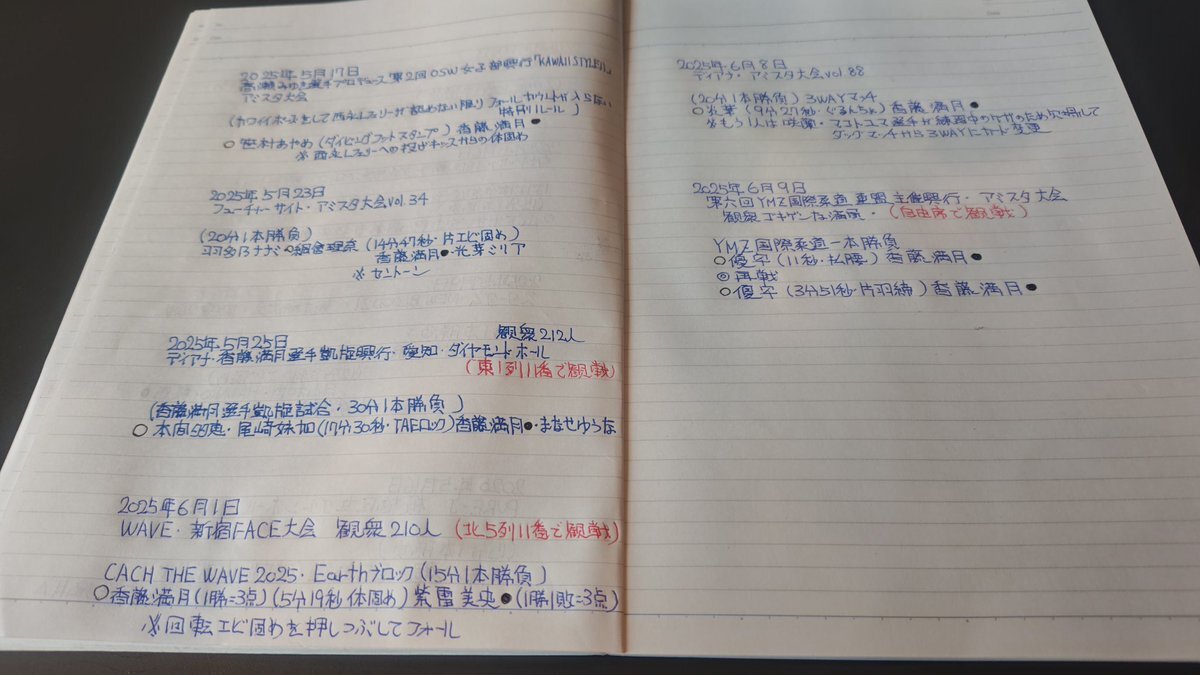 2025年5月17日
高瀬みゆき選手プロデュース 第2回OSW女子部興行「KAWAII STYLE!!」
アミスタ大会
(カワイイポーズをして西永レフリーが認めない限りフォールカウントが入らない
特別ルール)
○笹村あやめ(ダイビングフットスタンプ)香藤満月●
※西永レフリーへの投げキッスからの体固め
2025年5月23日
フューチャーサイト・アミスタ大会vol.34
(20分1本勝負)
羽多乃ナナミ○組倉理奈(14分47秒・片エビ固め)
香藤満月●・光芽ミリア
※セントーン
2025年5月25日 観衆212人
ディアナ・香藤満月選手凱旋興行・愛知・ダイヤモンドホール
(東1列11番で観戦)
(香藤満月選手凱旋試合・30分1本勝負)
○本間多恵・尾﨑妹加(17分30秒・TAEロック)香藤満月●・まなせゆうな
2025年6月1日
WAVE・新宿FACE大会 観衆210人 (北5列11番で観戦)
CACH THE WAVE 2025・Earthブロック(15分1本勝負)
○香藤満月(1勝=3点)(5分19秒 体固め)紫雷美央●(1勝1敗=3点)
※回転エビ固めを押しつぶしてフォール
2025年6月8日
ディアナ・アミスタ大会vol.88
(20分1本勝負)3WAYマッチ
○光華(9分27秒・ぐるんちょ)香藤満月●
※もう1人は咲蘭・マコトユマ選手が練習中のケガのため欠場して
タッグマッチから3WAYにカード変更
2025年6月9日
第六回YMZ国際柔道連盟主催興行・アミスタ大会
観衆ゴキゲンな満員・(自由席で観戦)
YMZ国際柔道一本勝負
○優宇(11秒・払腰)香藤満月●
◎再戦
○優宇(3分51秒・片羽絞)香藤満月●